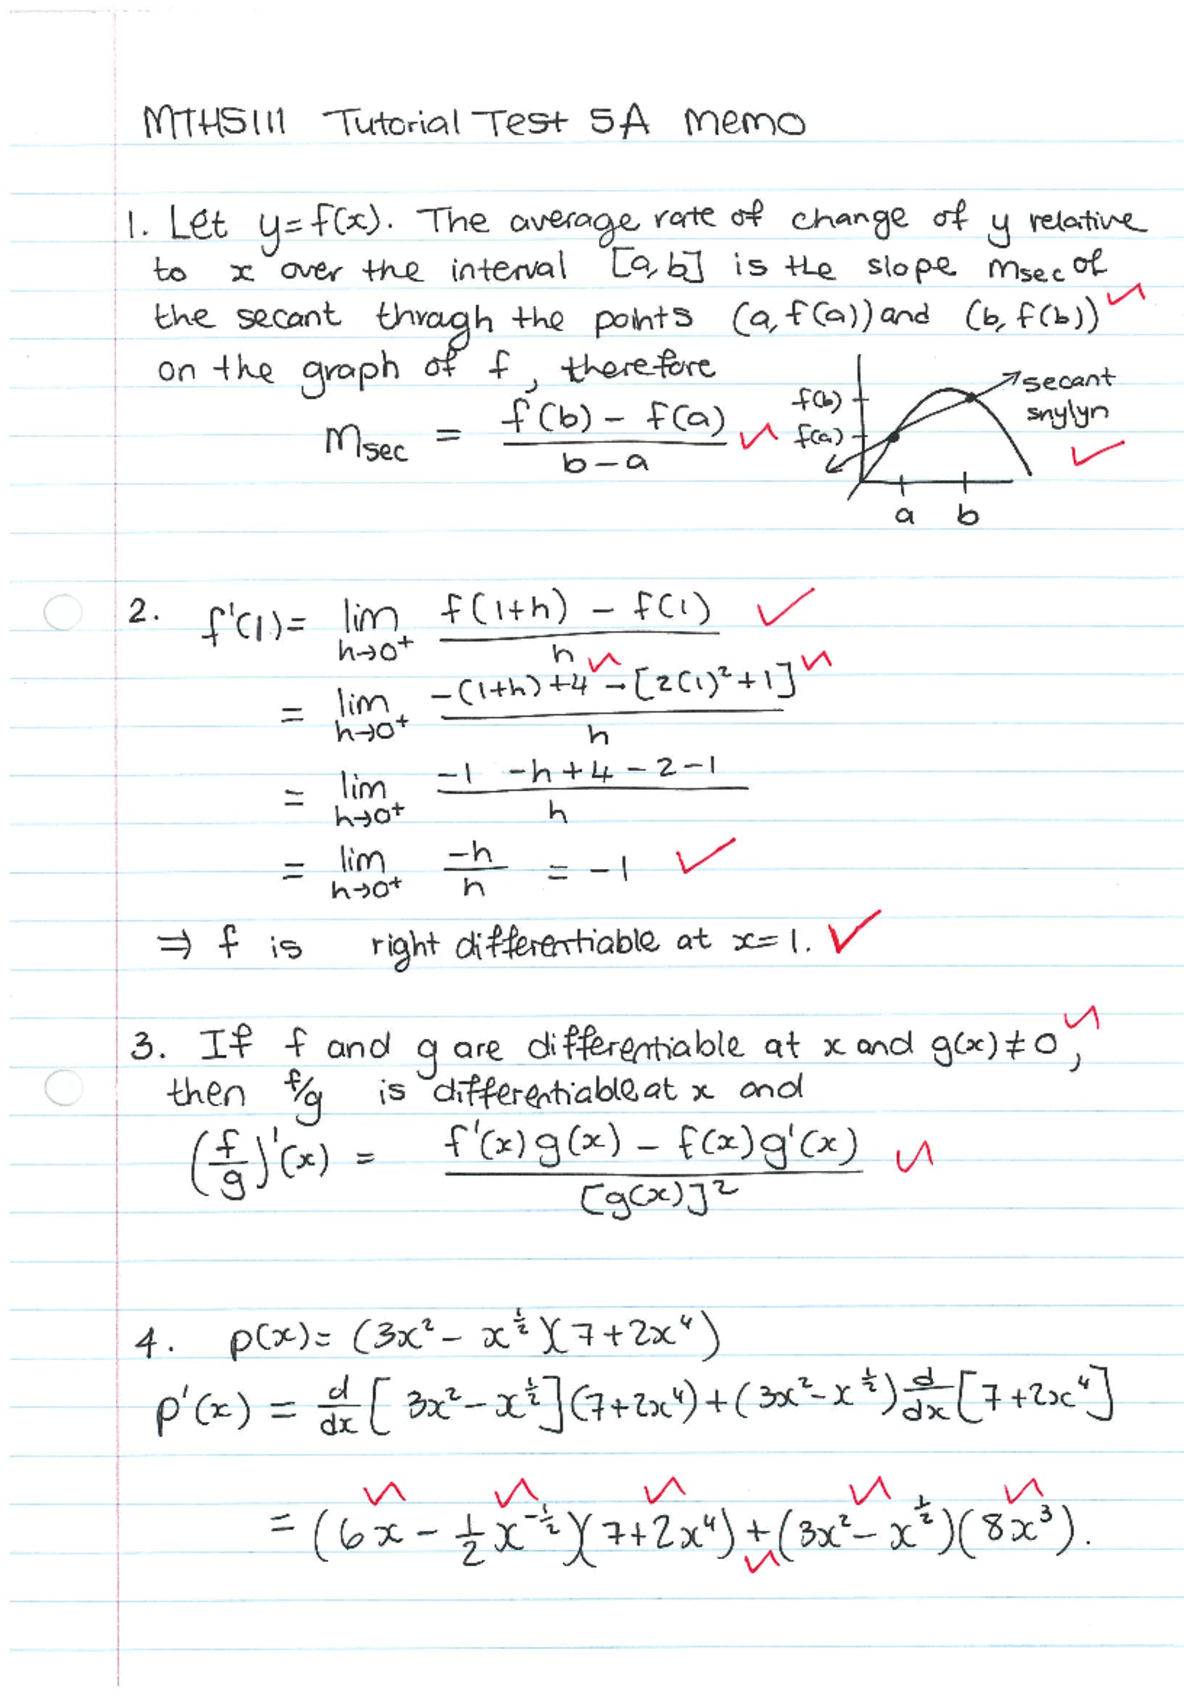 MTHS111 Tutorial Test 5A memo
1. Let y=f(x). The average rate of change of y relative
to x over the interval [a,b] is the slope msec of
the secant through the points (a,f(a)) and (b,f(b))
on the graph of f, therefore
msec = (f(b) - f(a))/(b-a)
f(b)
f(a)
secant
snylyn
a b
2. f'(1) = lim h→0⁺ (f(1+h) - f(1))/h
= lim h→0⁺ (-(1+h)+4 - [2(1)²+1])/h
= lim h→0⁺ (-1 -h+4-2-1)/h
= lim h→0⁺ -h/h = -1
⇒ f is right differentiable at x=1.
3. If f and g are differentiable at x and g(x)≠0,
then f/g is differentiable at x and
(f/g)'(x) = (f'(x)g(x) - f(x)g'(x))/[g(x)]²
4. p(x)= (3x² - x^½)(7+2x⁴)
p'(x) = d/dx [3x²-x^½](7+2x⁴)+(3x²-x^½) d/dx [7+2x⁴]
= (6x - ½x^-½)(7+2x⁴)+(3x²-x^½)(8x³).